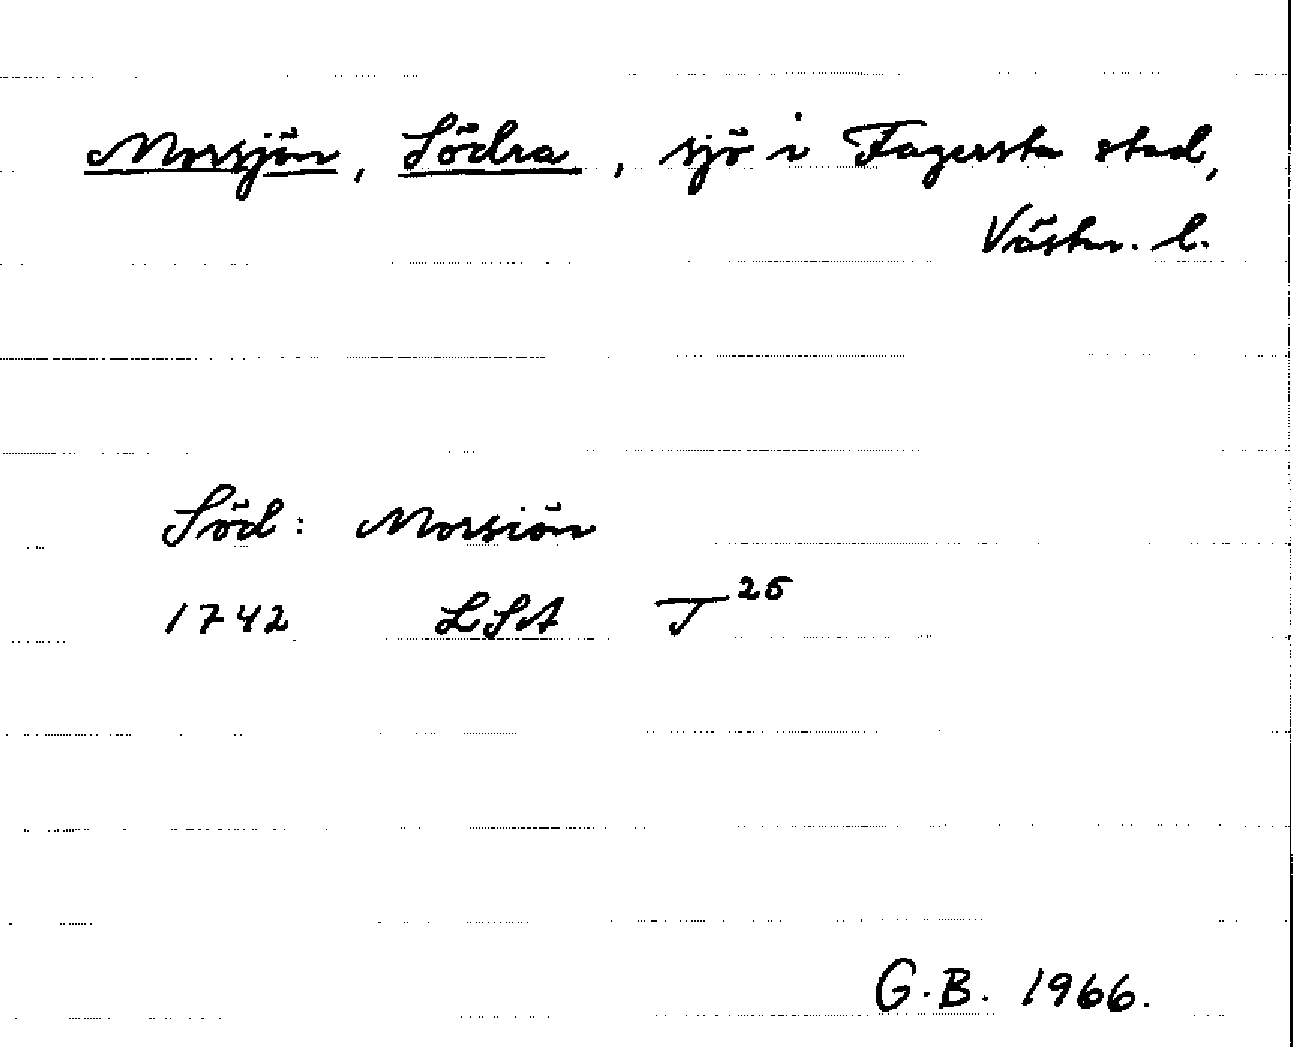 Morsjön, Södra, sjö i Fagersta stad,
Västm. l.
Söd: Morsiön
1742 LSA T²⁵
G.B. 1966.